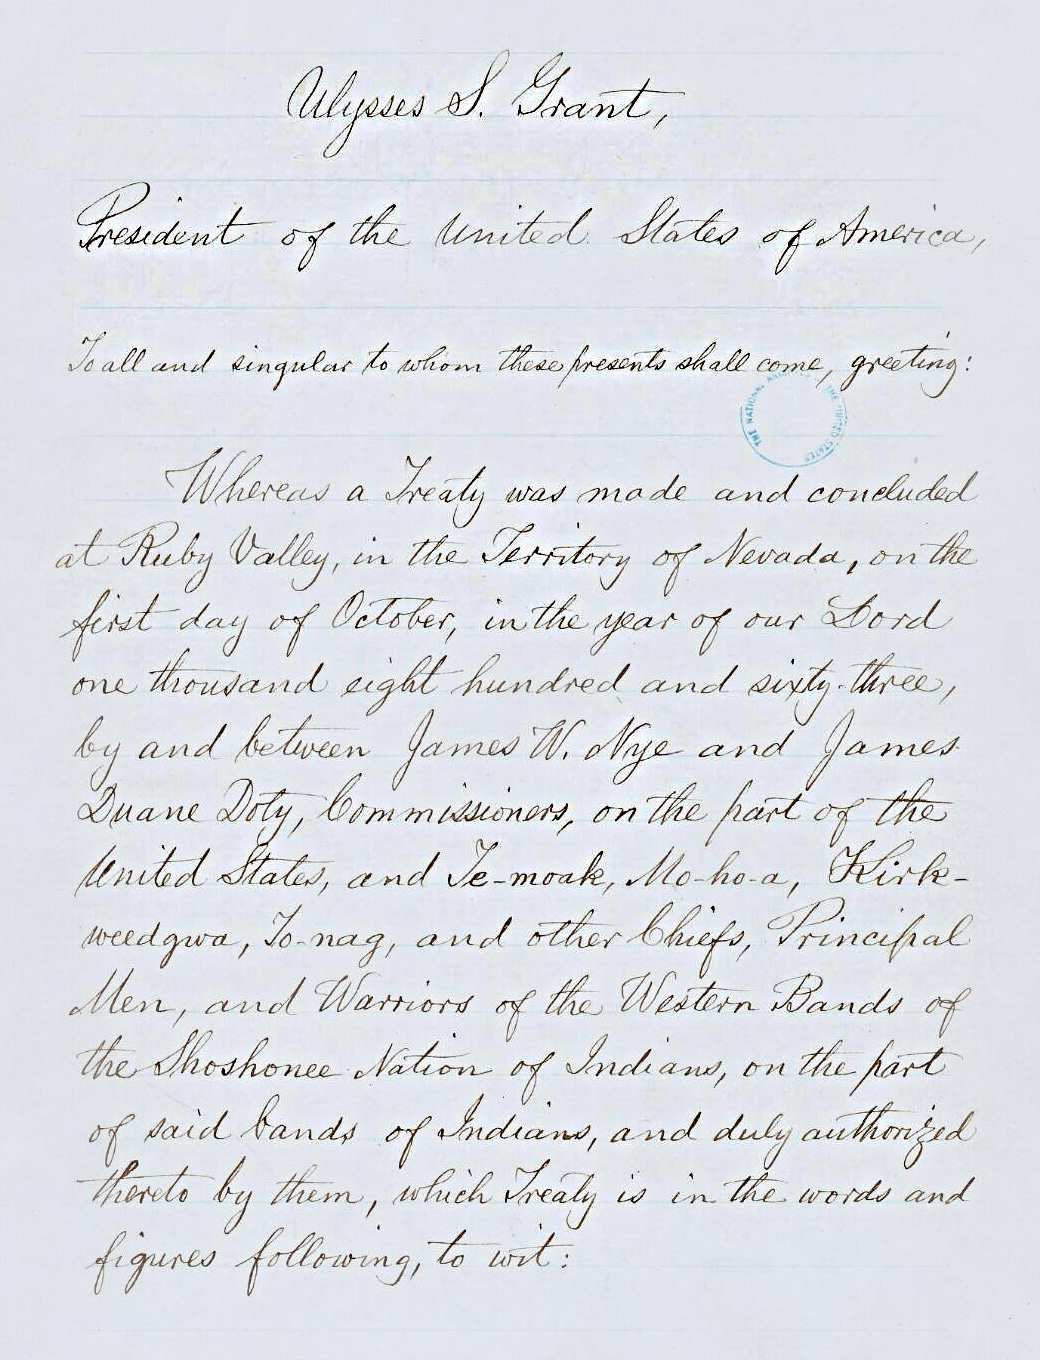 Ulysses S. Grant,
President of the United States of America,
To all and singular to whom these presents shall come, greeting:
THE NATIONAL ARCHIVES OF THE UNITED STATES
Whereas a Treaty was made and concluded
at Ruby Valley, in the Territory of Nevada, on the
first day of October, in the year of our Lord
one thousand eight hundred and sixty-three,
by and between James W. Nye and James
Duane Doty, Commissioners, on the part of the
United States, and Te-moak, Mo-ho-a, Kirk-
weedgwa, To-nag, and other Chiefs, Principal
Men, and Warriors of the Western Bands of
the Shoshonee Nation of Indians, on the part
of said bands of Indians, and duly authorized
thereto by them, which Treaty is in the words and
figures following, to wit: